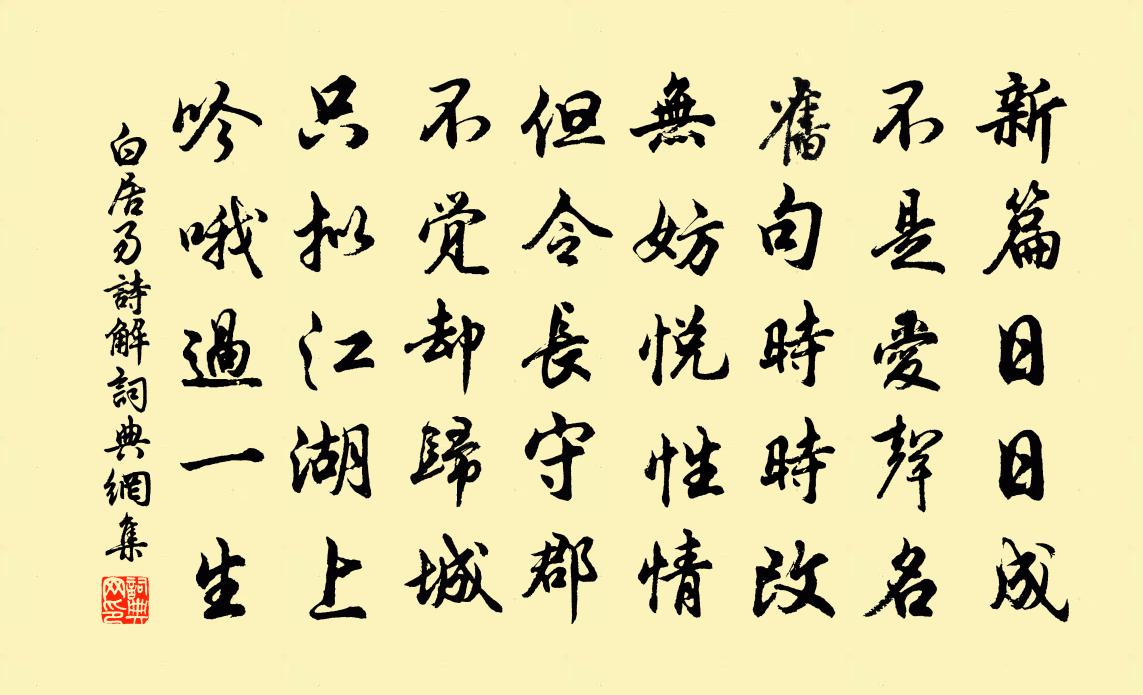 新篇日日成
不是愛聲名
舊句時時改
無妨悦性情
但令長守郡
不觉却歸城
只拟江湖上
吟哦過一生
白居易詩解詞典網集
詞典网印